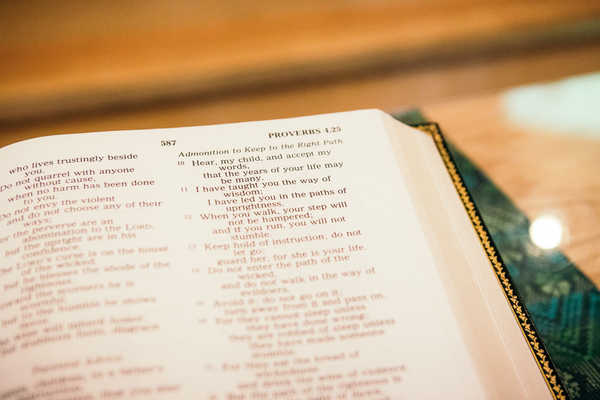 587
PROVERBS 4.25
who lives trustingly beside
you.
Do not quarrel with anyone
without cause,
when no harm has been done
to you.
Do not envy the violent
and do not choose any of their
ways;
for the perverse are an
abomination to the LORD,
but the upright are in his
confidence.
The LORD's curse is on the house
of the wicked,
but he blesses the abode of the
righteous.
Toward the scorners he is
scornful,
but to the humble he shows
favor.
The wise will inherit honor,
but stubborn fools, disgrace
Parental Advice
children, to a father's
Admonition to Keep to the Right Path
10 Hear, my child, and accept my
words,
that the years of your life may
be many.
11 I have taught you the way of
wisdom;
I have led you in the paths of
uprightness.
12 When you walk, your step will
not be hampered;
and if you run, you will not
stumble.
13 Keep hold of instruction; do not
let go;
guard her, for she is your life.
14 Do not enter the path of the
wicked,
and do not walk in the way of
evildoers.
15 Avoid it; do not go on it;
turn away from it and pass on.
16 For they cannot sleep unless
they have done wrong;
they are robbed of sleep unless
they have made someone
stumble.
17 For they eat the bread of
wickedness
and drink the wine of violence.
18 But the path of the righteous is